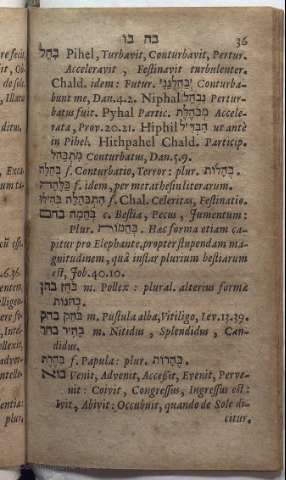 בה בו 36
בָּהַל Pihel, Turbavit, Conturbavit, Pertur.
Acceleravit, Festinavit turbulenter.
Chald. idem: Futur. יְבַהֲלֻנַּנִי Conturba-
bunt me, Dan. 4. 2. Niphal נִבְהַל Pertur-
batus fuit. Pyhal Partic. מְבֹהֶלֶת Accele-
rata, Prov. 20. 21. Hiphil הִבְהִיל ut antè
in Pihel. Hithpahel Chald. Particip.
מִתְבָּהַל Conturbatus, Dan. 5. 9.
בֶּהָלָה f. Conturbatio, Terror: plur. בֶּהָלוֹת.
בַּלָּהָה f. idem, per metathesin literarum.
הִתְבְּהָלָה בְּהִילוּ f. Chal. Celeritas, Festinatio.
בהם בְּהֵמָה c. Bestia, Pecus, Jumentum:
Plur. בְּהֵמוֹת. Hæc forma etiam ca-
pitur pro Elephante, propter stupendam ma-
gnitudinem, quâ instar plurium bestiarum
est, Job. 40. 10.
בהן בֹּהֶן m. Pollex: plural. alterius formæ
בְּהֹנוֹת.
בהק בֹּהַק m. Pustula alba, Vitiligo, Lev. 13. 39.
בהר בָּהִיר m. Nitidus, Splendidus, Can-
didus.
בַּהֶרֶת f. Papula: plur. בֶּהָרוֹת.
בוא Venit, Advenit, Accessit, Evenit, Perve-
nit: Coivit, Congressus, Ingressus est:
Ivit, Abivit: Occubuit, quando de Sole di-
citur.